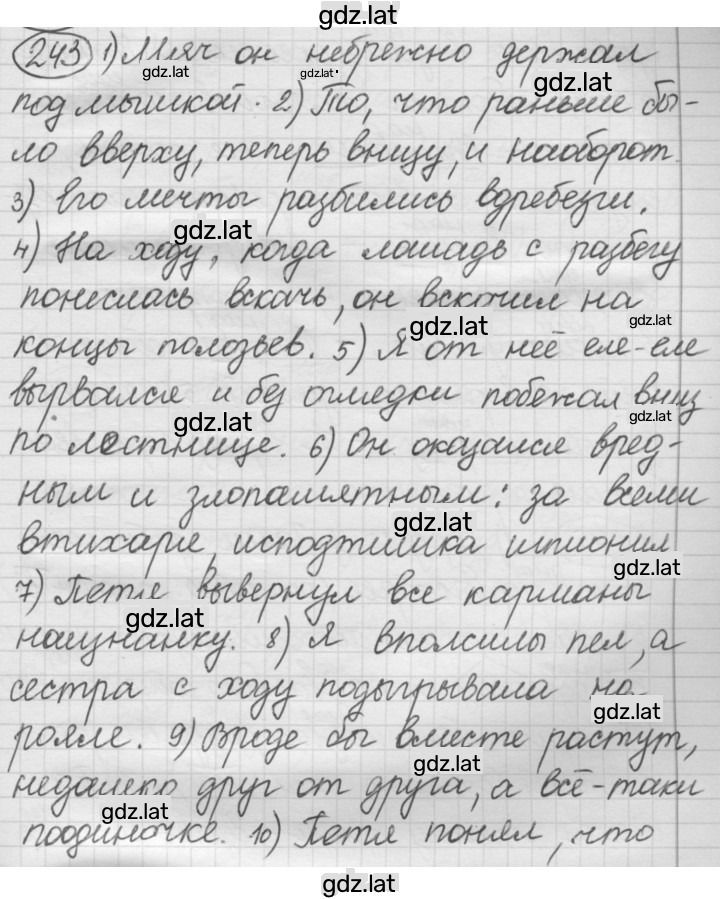 gdz.lat
243 1) Мяч он небрежно держал
gdz.lat gdz.lat gdz.lat
под мышкой. 2) То, что раньше бы-
ло вверху, теперь внизу, и наоборот.
3) Его мечты разбились вдребезги.
gdz.lat
4) На ходу, когда лошадь с разбегу
понеслась вскачь, он вскочил на
gdz.lat gdz.lat
концы полозьев. 5) Я от неё еле-еле
вырвался и без оглядки побежал вниз
gdz.lat gdz.lat
по лестнице. 6) Он оказался вред-
ным и злопамятным: за всеми
gdz.lat
втихаря, исподтишка шпионил
gdz.lat
7) Петя вывернул все карманы
gdz.lat
наизнанку. 8) Я вполсилы пел, а
сестра с ходу подыгрывала на
gdz.lat
рояле. 9) Вроде бы вместе растут,
gdz.lat
недалеко друг от друга, а всё-таки
gdz.lat
поодиночке. 10) Петя понял, что
gdz.lat